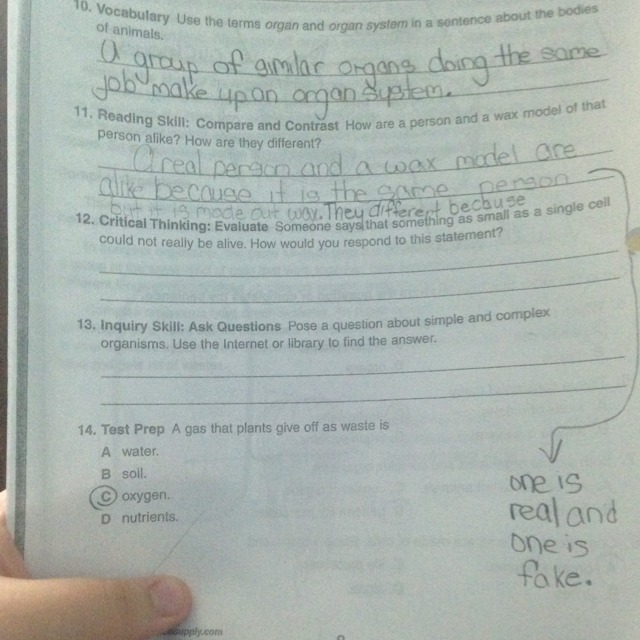 10. Vocabulary Use the terms organ and organ system in a sentence about the bodies
of animals.
A group of similar organs doing the same
job make up an organ system.
11. Reading Skill: Compare and Contrast How are a person and a wax model of that
person alike? How are they different?
A real person and a wax model are
alike because it is the same person
but it is made out wax. They different because
12. Critical Thinking: Evaluate Someone says that something as small as a single cell
could not really be alive. How would you respond to this statement?
13. Inquiry Skill: Ask Questions Pose a question about simple and complex
organisms. Use the Internet or library to find the answer.
14. Test Prep A gas that plants give off as waste is
A water.
B soil.
C oxygen.
D nutrients.
one is
real and
one is
fake.